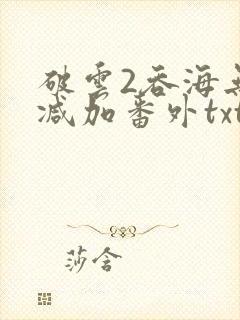 破雲2吞海無
减加番外txt
莎含